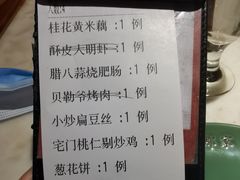 桂花黄米藕 :1 例
酥皮大明虾 :1 例
腊八蒜烧肥肠 :1 例
贝勒爷烤肉 :1 例
小炒扁豆丝 :1 例
宅门桃仁剔炒鸡 :1 例
葱花饼 :1 例